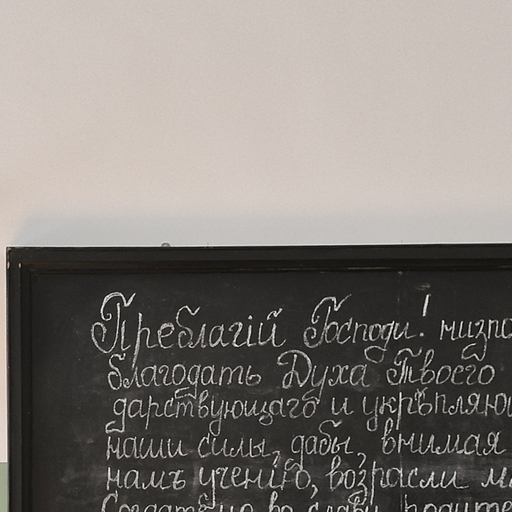 Преблагій Господи! низпо
благодать Духа Твоего
дарствующаго и укрѣпляю
наши силы, дабы, внимая
намъ ученію, возрасли м
Создателю во славу, родите